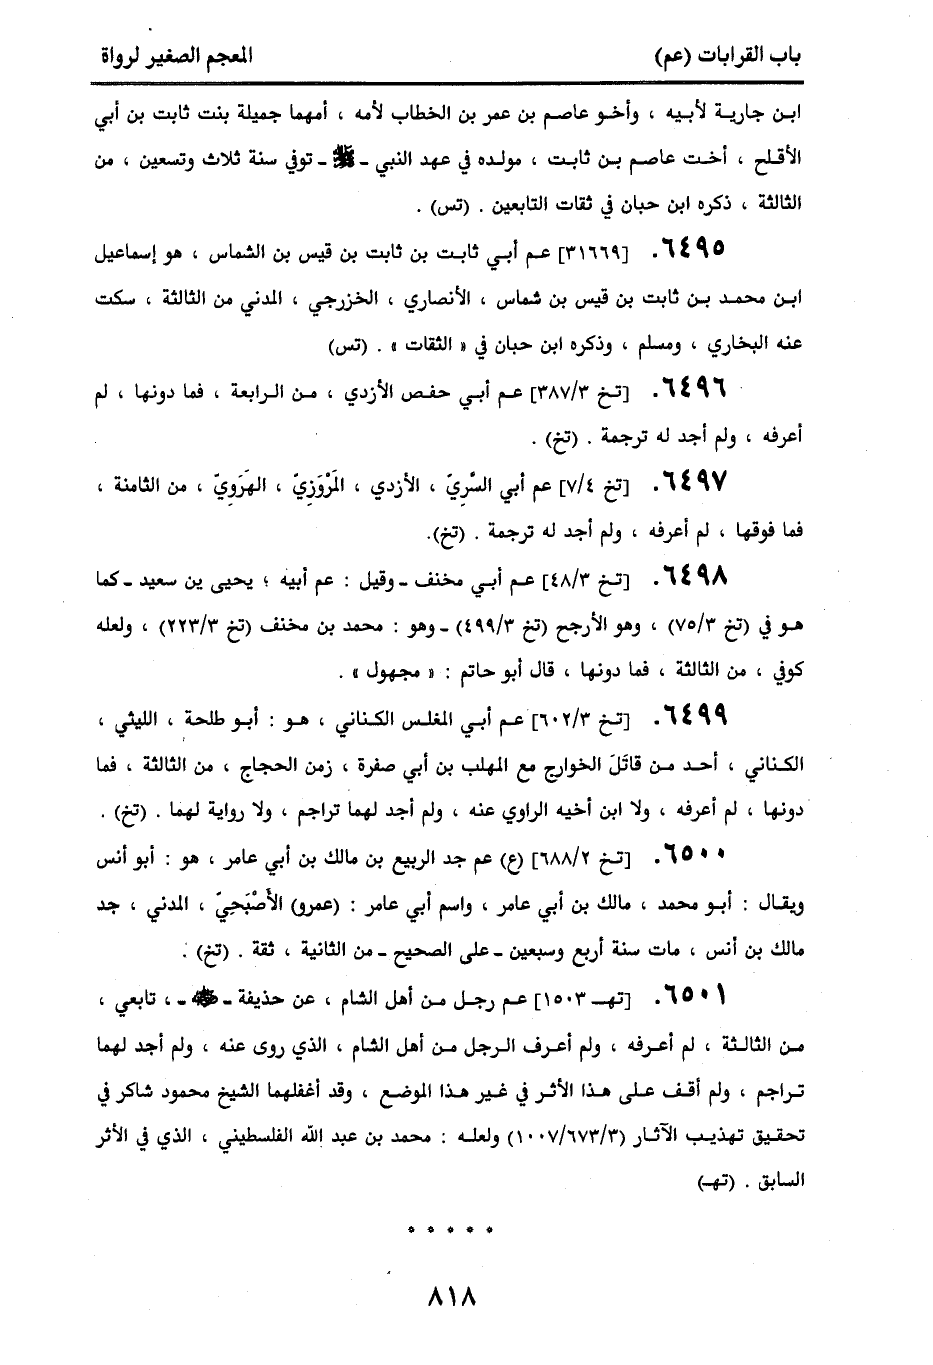 باب القرابات (عم) المعجم الصغير لرواة
ابن جارية لأبيه ، وأخو عاصم بن عمر بن الخطاب لأمه ، أمهما جميلة بنت ثابت بن أبي
الأقلح ، أخت عاصم بن ثابت ، مولده في عهد النبي ـ ﷺ ـ توفي سنة ثلاث وتسعين ، من
الثالثة ، ذكره ابن حبان في ثقات التابعين . (تس) .
٦٤٩٥. [٣١٦٦٩] عم أبي ثابت بن ثابت بن قيس بن الشماس ، هو إسماعيل
ابن محمد بن ثابت بن قيس بن شماس ، الأنصاري ، الخزرجي ، المدني من الثالثة ، سكت
عنه البخاري ، ومسلم ، وذكره ابن حبان في « الثقات » . (تس)
٦٤٩٦. [تخ ٣/ ٣٨٧] عم أبي حفص الأزدي ، من الرابعة ، فما دونها ، لم
أعرفه ، ولم أجد له ترجمة . (تخ) .
٦٤٩٧. [تخ ٤/ ٧] عم أبي السَّرِيّ ، الأزدي ، المَرْوَزِيّ ، الهَرَوِيّ ، من الثامنة ،
فما فوقها ، لم أعرفه ، ولم أجد له ترجمة . (تخ).
٦٤٩٨. [تخ ٣/ ٤٨] عم أبي مخنف ـ وقيل : عم أبيه ؛ يحيى بن سعيد ـ كما
هو في (تخ ٣/ ٧٥) ، وهو الأرجح (تخ ٣/ ٤٩٩) ـ وهو : محمد بن مخنف (تخ ٣/ ٢٢٣) ، ولعله
كوفي ، من الثالثة ، فما دونها ، قال أبو حاتم : « مجهول » .
٦٤٩٩. [تخ ٣/ ٦٠٢] عم أبي المغلس الكناني ، هو : أبو طلحة ، الليثي ،
الكناني ، أحد من قاتَلَ الخوارج مع المهلب بن أبي صفرة ، زمن الحجاج ، من الثالثة ، فما
دونها ، لم أعرفه ، ولا ابن أخيه الراوي عنه ، ولم أجد لهما تراجم ، ولا رواية لهما . (تخ) .
٦٥٠٠. [تخ ٢/ ٦٨٨] (ع) عم جد الربيع بن مالك بن أبي عامر ، هو : أبو أنس
ويقال : أبو محمد ، مالك بن أبي عامر ، واسم أبي عامر : (عمرو) الأَصْبَحِيّ ، المدني ، جد
مالك بن أنس ، مات سنة أربع وسبعين ـ على الصحيح ـ من الثانية ، ثقة . (تخ) .
٦٥٠١. [تهـ ١٥٠٣] عم رجل من أهل الشام ، عن حذيفة ـ ﷺ ـ ، تابعي ،
من الثالثة ، لم أعرفه ، ولم أعرف الرجل من أهل الشام ، الذي روى عنه ، ولم أجد لهما
تراجم ، ولم أقف على هذا الأثر في غير هذا الموضع ، وقد أغفلهما الشيخ محمود شاكر في
تحقيق تهذيب الآثار (٣/ ٦٧٣/ ١٠٠٧) ولعله : محمد بن عبد الله الفلسطيني ، الذي في الأثر
السابق . (تهـ)
* * * * *
٨١٨